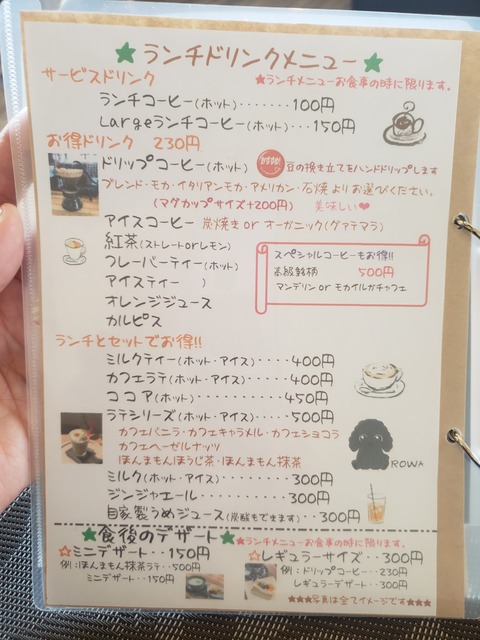 ★ランチドリンクメニュー★
サービスドリンク
★ランチメニューお食事の時に限ります。
ランチコーヒー(ホット)・・・・・・・100円
Largeランチコーヒー(ホット)・・・150円
お得ドリンク 230円
ドリップコーヒー(ホット) おすすめ! 豆の挽き立てをハンドドリップします
ブレンド・モカ・イタリアンモカ・アメリカン・石焼よりお選びください。
(マグカップサイズ+200円) 美味しい♥
アイスコーヒー 炭焼き or オーガニック(グァテマラ)
紅茶(ストレートorレモン)
フレーバーティー(ホット)
アイスティー )
オレンジジュース
カルピス
スペシャルコーヒーもお得!!
高級銘柄 500円
マンデリン or モカイルガチャフェ
ランチとセットでお得!!
ミルクティー(ホット・アイス)・・・・400円
カフェラテ(ホット・アイス)・・・・・400円
ココア(ホット・アイス)・・・・・・・450円
ラテシリーズ(ホット・アイス)・・・・500円
カフェバニラ・カフェキャラメル・カフェショコラ
カフェヘーゼルナッツ
ほんまもんほうじ茶・ほんまもん抹茶
ROWA
ミルク(ホット・アイス)・・・・・・・300円
ジンジャエール・・・・・・・・・・300円
自家製うめジュース(炭酸もできます)・・300円
★食後のデザート★
★ランチメニューお食事の時に限ります。
☆ミニデザート・・150円
例:ほんまもん抹茶ラテ・・500円
ミニデザート・・150円
☆レギュラーサイズ・・300円
例:ドリップコーヒー・・230円
レギュラーデザート・・300円
★★★写真は全てイメージです★★★